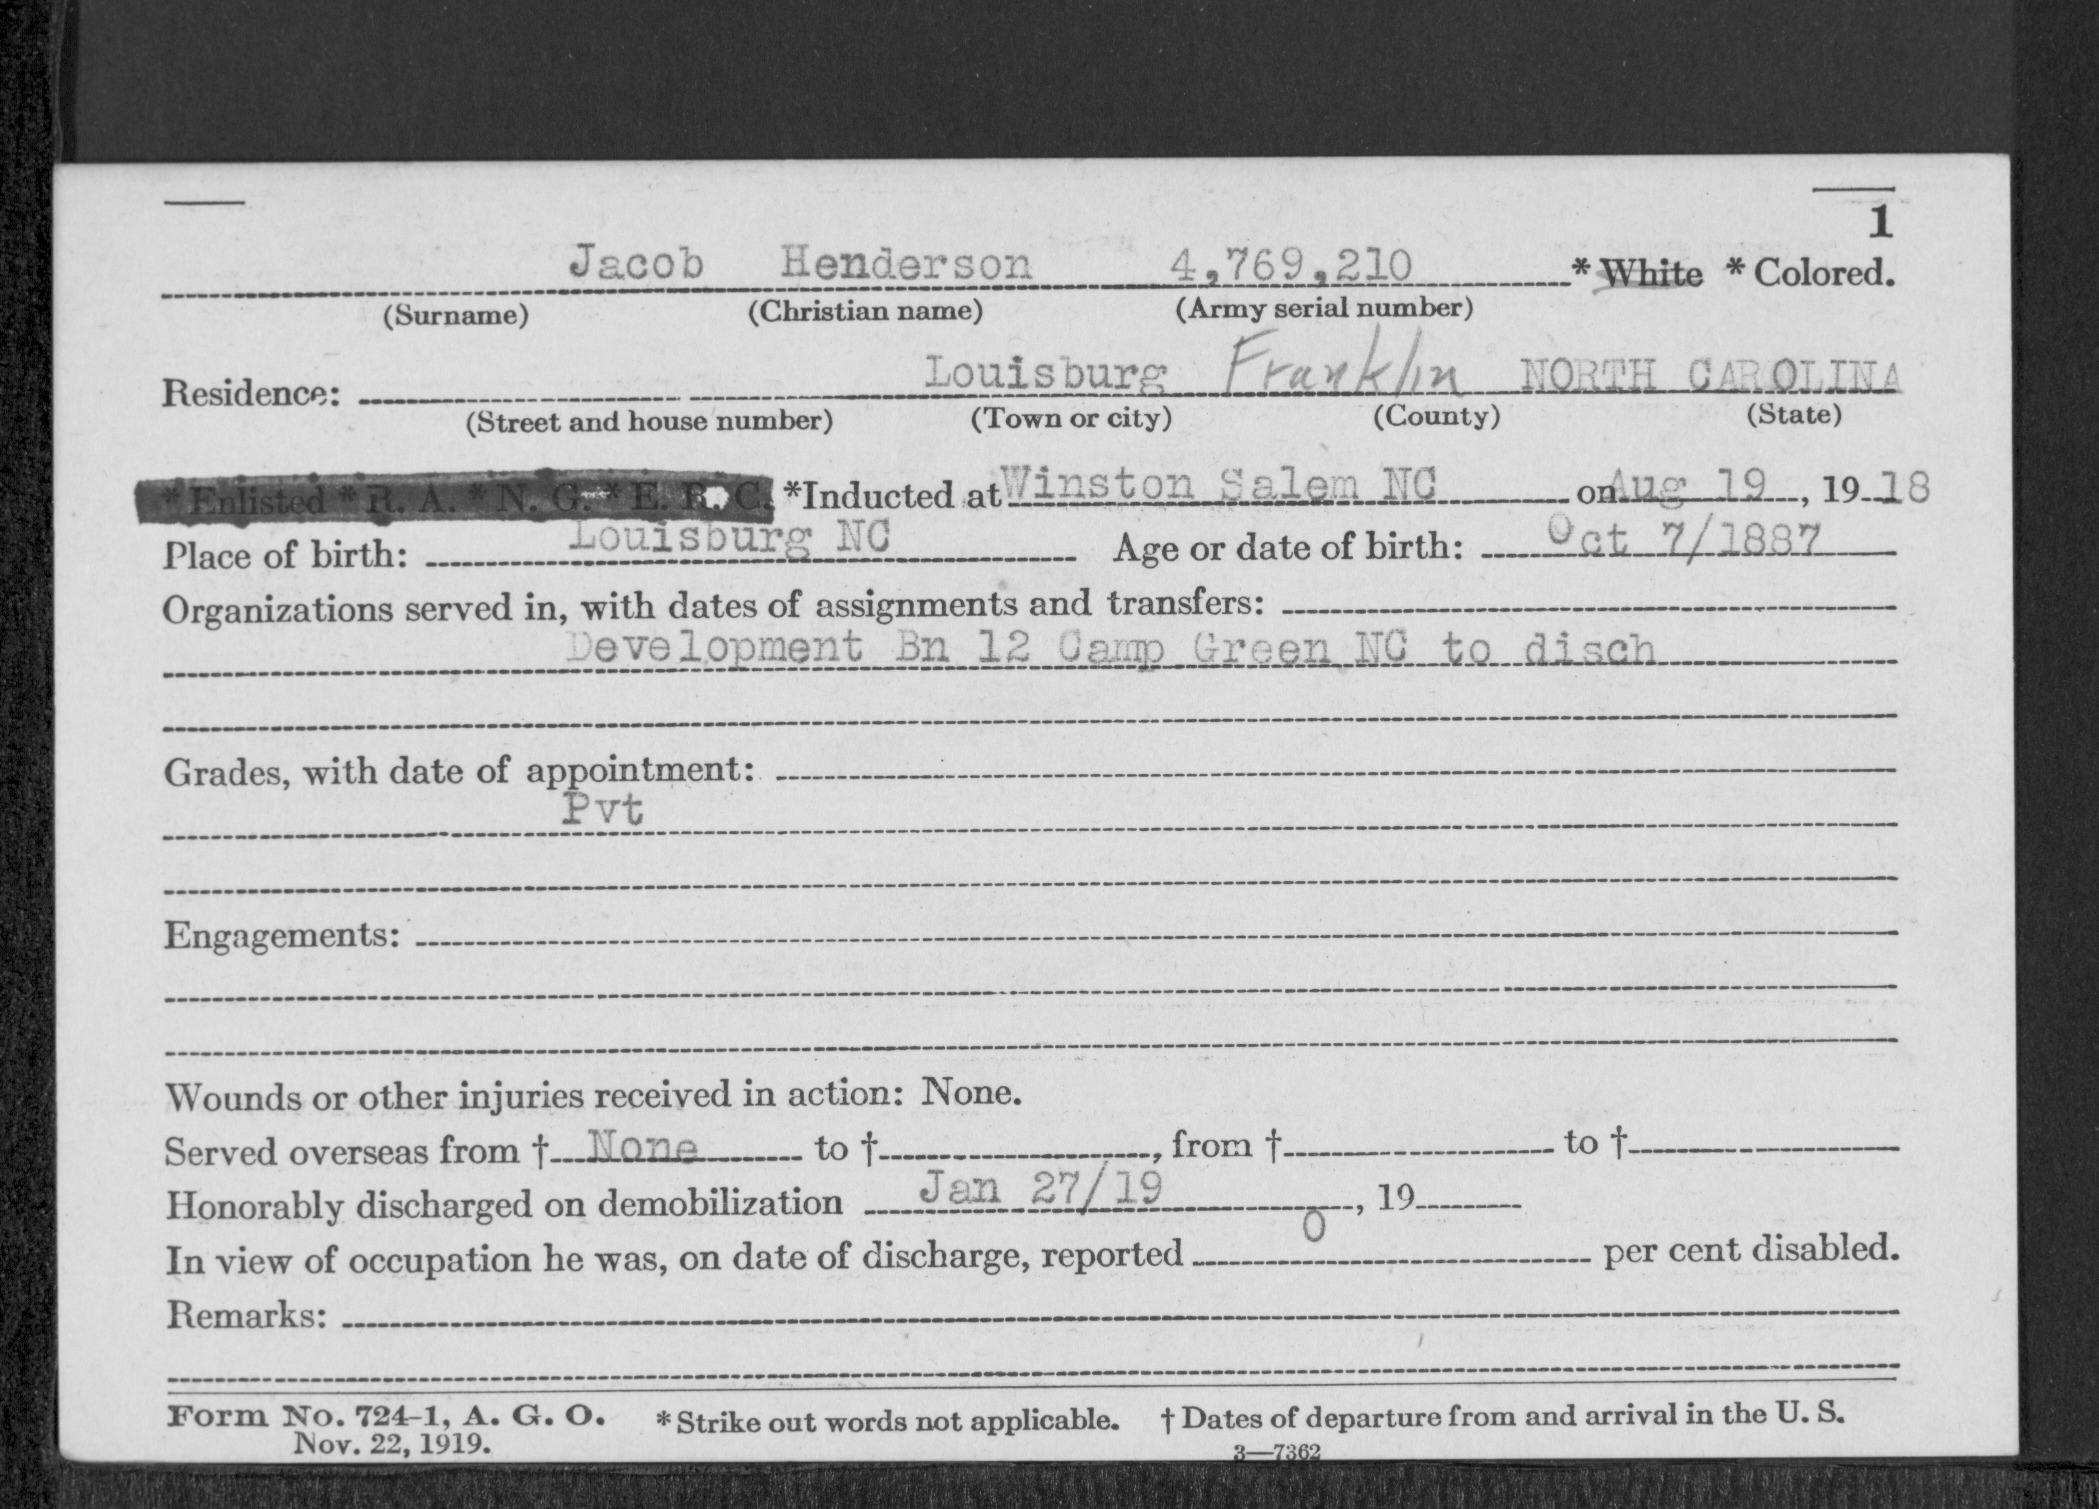 1
Jacob Henderson 4,769,210 * White * Colored.
(Surname) (Christian name) (Army serial number)
Residence: Louisburg Franklin NORTH CAROLINA
(Street and house number) (Town or city) (County) (State)
* Enlisted * R. A. * N. G. * E. R. C. *Inducted at Winston Salem NC on Aug 19, 19 18
Place of birth: Louisburg NC Age or date of birth: Oct 7/1887
Organizations served in, with dates of assignments and transfers:
Development Bn 12 Camp Green NC to disch
Grades, with date of appointment:
Pvt
Engagements:
Wounds or other injuries received in action: None.
Served overseas from † None to †, from † to †
Honorably discharged on demobilization Jan 27/19, 19
In view of occupation he was, on date of discharge, reported 0 per cent disabled.
Remarks:
Form No. 724-1, A. G. O. * Strike out words not applicable. † Dates of departure from and arrival in the U. S.
Nov. 22, 1919. 3—7362